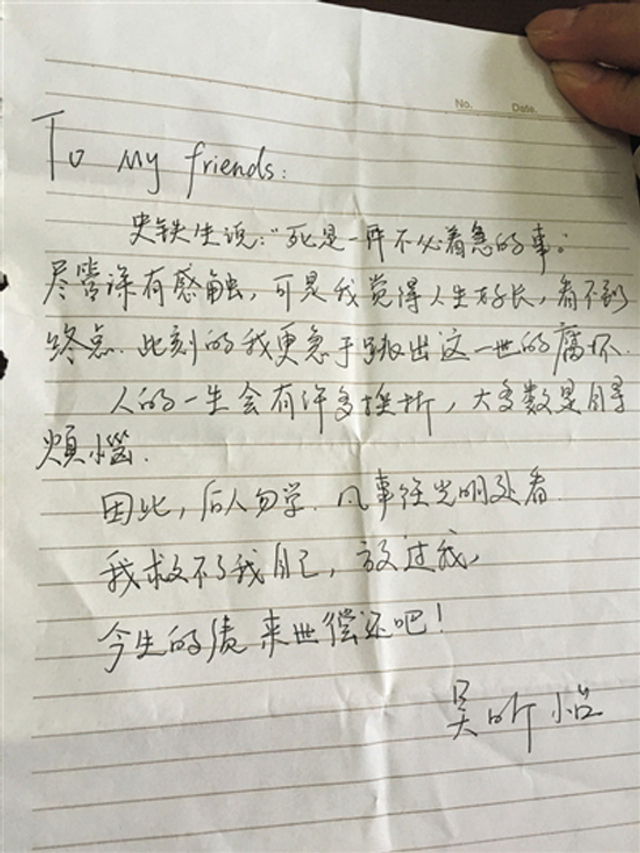 No.   Date.
To My friends:
史铁生说:"死是一件不必着急的事。
尽管深有感触,可是我觉得人生好长,看不到
终点.此刻的我更急于跳出这一世的腐坏.
人的一生会有许多挫折,大多数是自寻
煩惱.
因此,后人勿学.凡事往光明处看.
我救不了我自己,放过我,
今生的债来世偿还吧!
吴昕怡